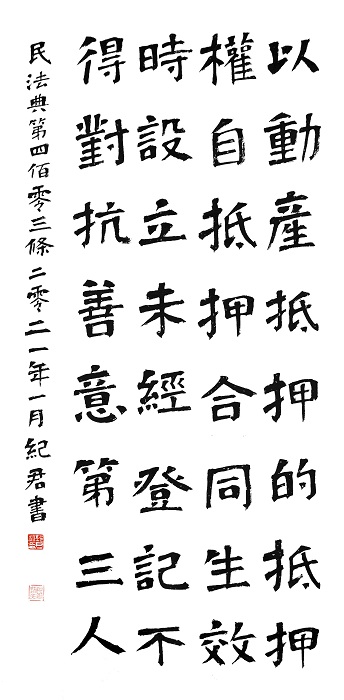 以動產抵押的抵押
權自抵押合同生效
時設立未經登記不
得對抗善意第三人
民法典第四佰零三條二零二一年一月紀君書